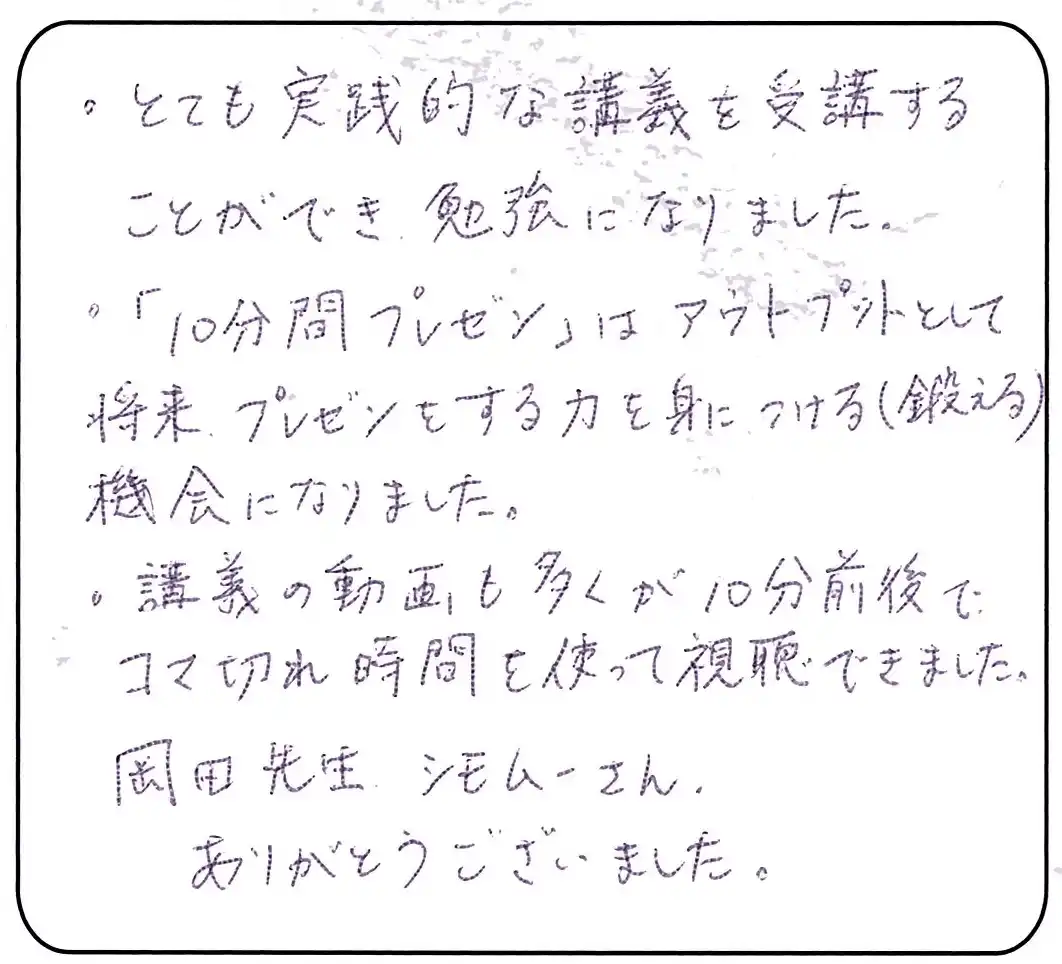 。とても実践的な講義を受講する
ことができ、勉強になりました。
。「10分間プレゼン」はアウトプットとして
将来、プレゼンをする力を身につける(鍛える)
機会になりました。
。講義の動画も多くが10分前後で
コマ切れ時間を使って視聴できました。
岡田先生、シモムーさん、
ありがとうございました。